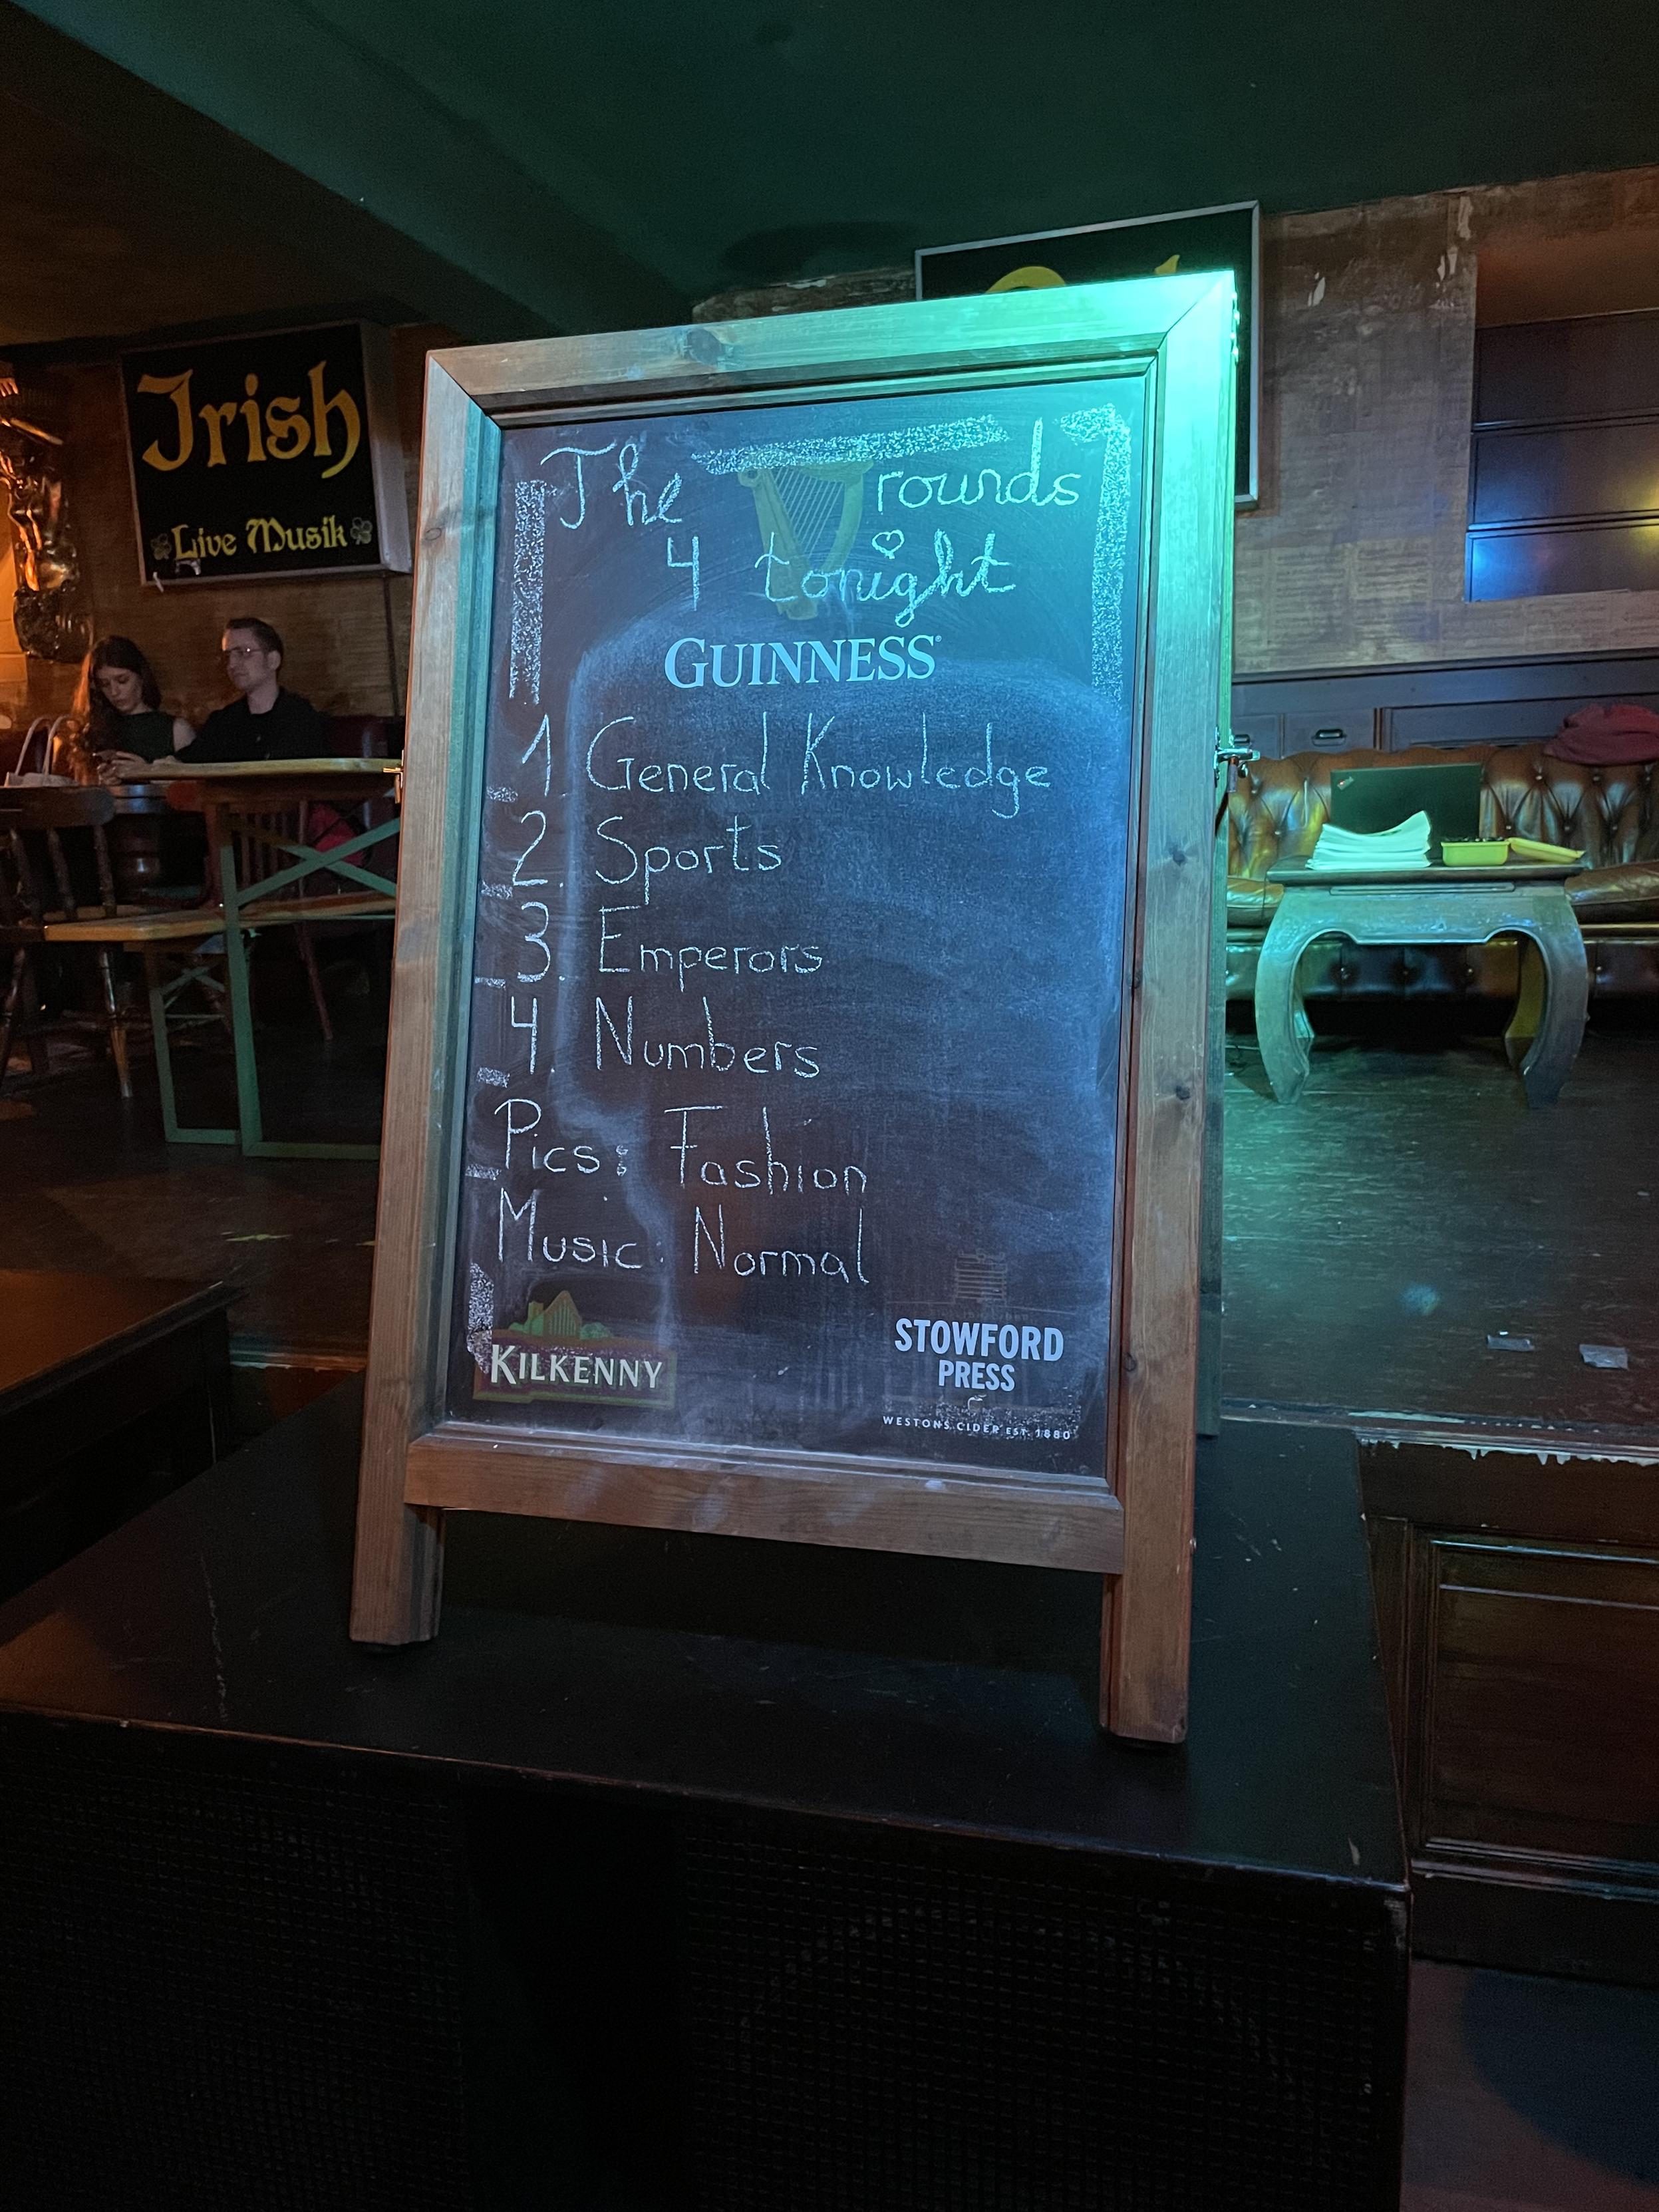 Irish
Live Musik
The rounds
4 tonight
GUINNESS
1 General Knowledge
2. Sports
3. Emperors
4 Numbers
Pics: Fashion
Music: Normal
KILKENNY
STOWFORD
PRESS
WESTONS CIDER EST. 1880